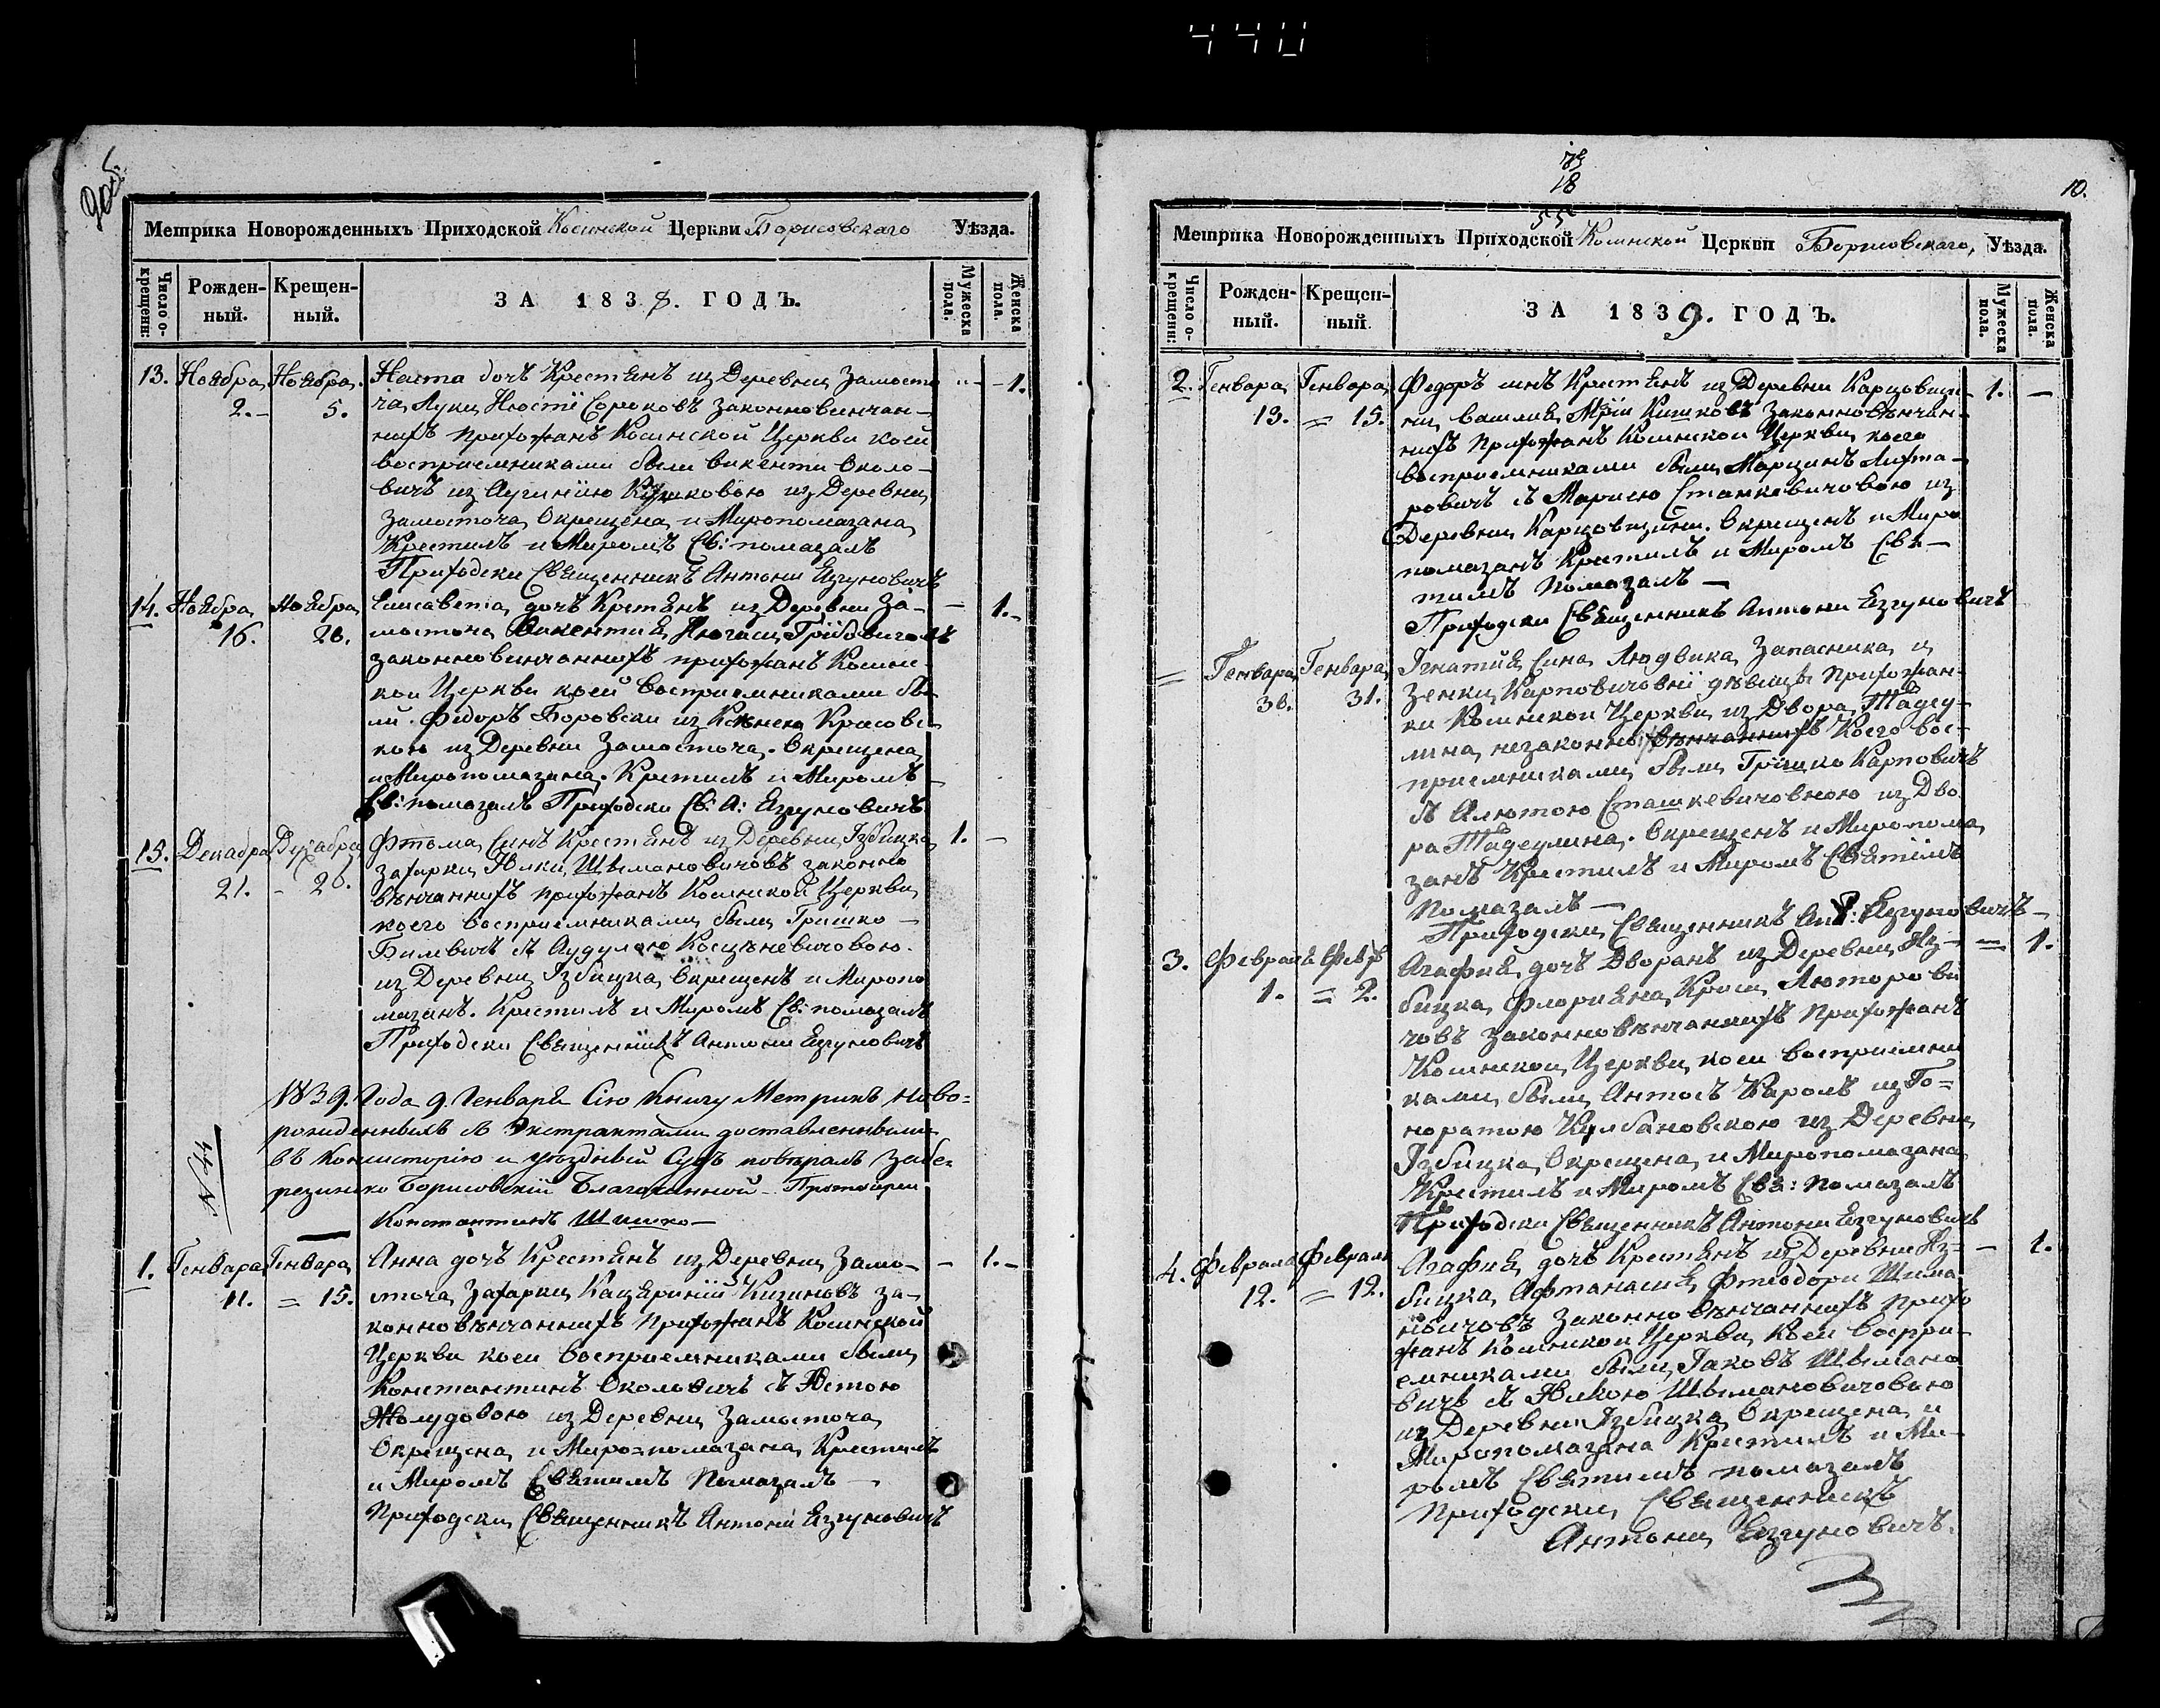 440
Метрика Новорожденныхъ Приходской Косинской Церкви Борисовскаго Уѣзда.
Число окрещенн: Рожденный. Крещенный. ЗА 1838. ГОДЪ. Мужеска пола. Женска пола.
13. Ноября Ноября Наста дочъ Крестянъ из Деревни Замосто - 1.
2. 5. ча Луки Сороковъ законновинчан-
нихъ прихожанъ Косинской Церкви коей
восприемниками были Викенти Около-
вичъ из из Деревни
Замосточа Окрещена и Миропомазана
Крестилъ и Миромъ Св: помазалъ
Приходски Священникъ Антони Езгуновичъ
14. Ноября Ноября Елисавета дочъ Крстянъ из Деревни За- - 1.
16. 20. мосточа Викентия
законновинчаннихъ прихожанъ Косинс-
кои Церкви коей восприемниками бы-
ли Федоръ Боровски из
кою из Деревни Замосточа. Окрещена
и Миропомазана. Крстилъ и Миромъ
Св: помазалъ Приходски Св: А: Езгуновичъ
15. Декабра Декабра Фтома Синъ Крестянъ из Деревни Ізбицка 1. -
21. - 26. Захарки Юлки Шымановичовъ законно
вѣнчаннихъ прихожанъ Косинской Церкви
коего восприемниками были Гришко
Билевичъ съ
из Деревни Ізбицка Окрещенъ и Миропо
мазанъ. Крстилъ и Миромъ Св: помазалъ
Приходски Священникъ Антони Езгуновичъ
1839. Года 9. Генваря Сію Книгу Метрикъ Ново=
рожденныхъ съ Экстрактами доставленными
въ Консисторію и уѣздный Судъ повѣрялъ Забе-
резинско Борисовскій Благочинной Протоиерей
Константинъ Шишко
N 44
1. Генвара Генвара Анна дочъ Крестянъ из Деревни Замо- - 1.
11. = 15. сточа Захарки за-
конновѣнчаннихъ прихожанъ Косинской
Церкви коеи восприемниками были
Константинъ Околовичъ съ Юстою
Жолудовою из Деревни Замосточа
Окрещена и Миро=помазана Крестилъ
и Миромъ Святимъ Помазалъ
Приходски Священникъ Антони Езгуновичъ
10.
55
Метрика Новорожденныхъ Приходской Косинской Церкви Борисовскаго, Уѣзда.
Число окрещенн: Рожденный. Крещенный. ЗА 1839. ГОДЪ. Мужеска пола. Женска пола.
2. Генвара Генвара Федоръ Крестянъ из Деревни Карцовщи- 1. -
13. = 15. ни законновѣнчан-
нихъ Прихожанъ Косинскои Церкви коего
восприемниками были Марцинъ Лихта-
ровичъ съ Марисею Станкевичовою из
Деревни Карцовщини. Окрещенъ и Миро
помазанъ Крестилъ и Миромъ Свя-
тимъ Помазалъ
Приходски Священникъ Антони Езгуновичъ
= Генвара Генвара Ігнатия Сина Людвика Запасника и
30. 31. Зенки Карповичовни дѣвицы Прихожан-
ки Косинской Церкви из Двора Тадеу-
лина незаконно вѣнчаннихъ Коего вос-
приемниками были Гришко Карповичъ
съ Алютою Сташкевичовною из Дво
ра Тадеулина. Окрещенъ и Миропома
занъ Крестилъ и Миромъ Святимъ
Помазалъ
Приходски Священникъ Ант: Езгуновичъ
3. Феврала Февр Агафия дочъ Дворанъ из Деревни Из- = 1.
1. = 2. бицка Флориана Люторови
човъ законновѣнчаннихъ Прихожанъ
Косинскои Церкви коеи восприемни
ками были Антосъ Кароль из Го=
норатою Кулбановскою из Деревни
Ізбицка, Окрещена и Миропомазана
Крестилъ и Миромъ Свя: Помазалъ
Приходски Священникъ Антони Езгуновичъ
4. Феврала Феврала Агафия дочъ Крестянъ из Деревни Из= - 1.
12. = 12. бицка Афтанасия Фтеодори Шима
новичовъ законно вѣнчаннихъ Прихо
жанъ Косинскои Церкви коеи воспри-
емниками были Іаковъ Шымано
вичъ съ Юлкою Шымановичовою
из Деревни Ізбицка Окрещена и
Миропомазана Крестилъ и Ми-
ромъ Святимъ помазалъ
Приходски Священникъ
Антони Езгуновичъ.